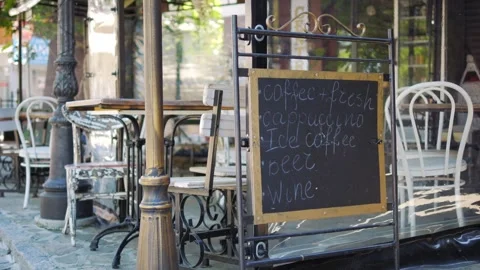 • coffee + fresh
• cappuccino
• Ice coffee
• beer
• wine •